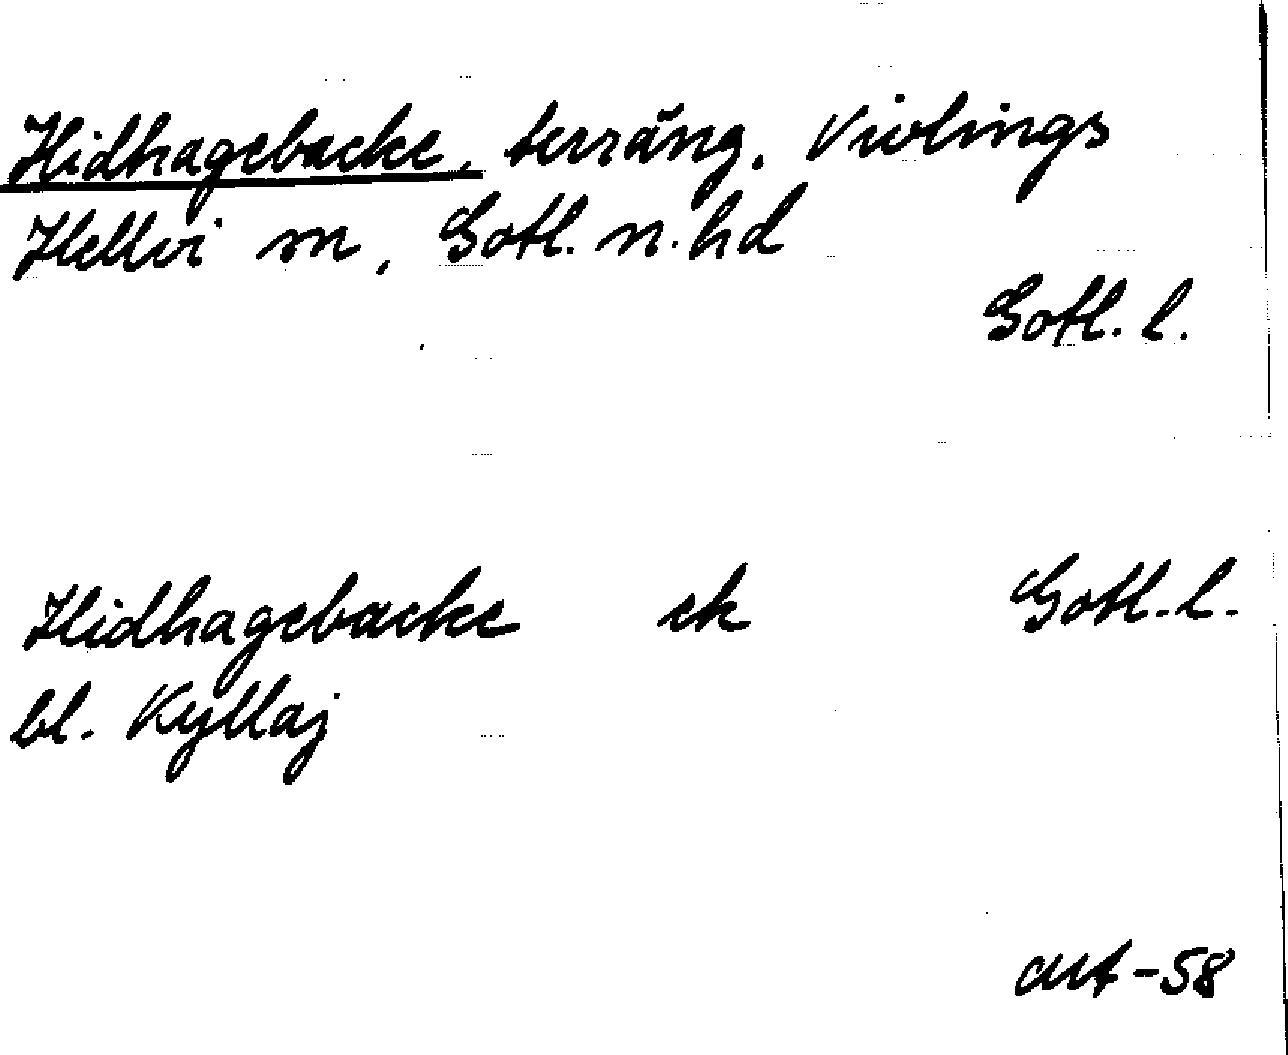 Hidhagebacke, terräng. Violings
Hellvi sn, Gotl. n. hd
Gotl. l.
Hidhagebacke ek Gotl. l.
bl. Kyllaj
avt -58